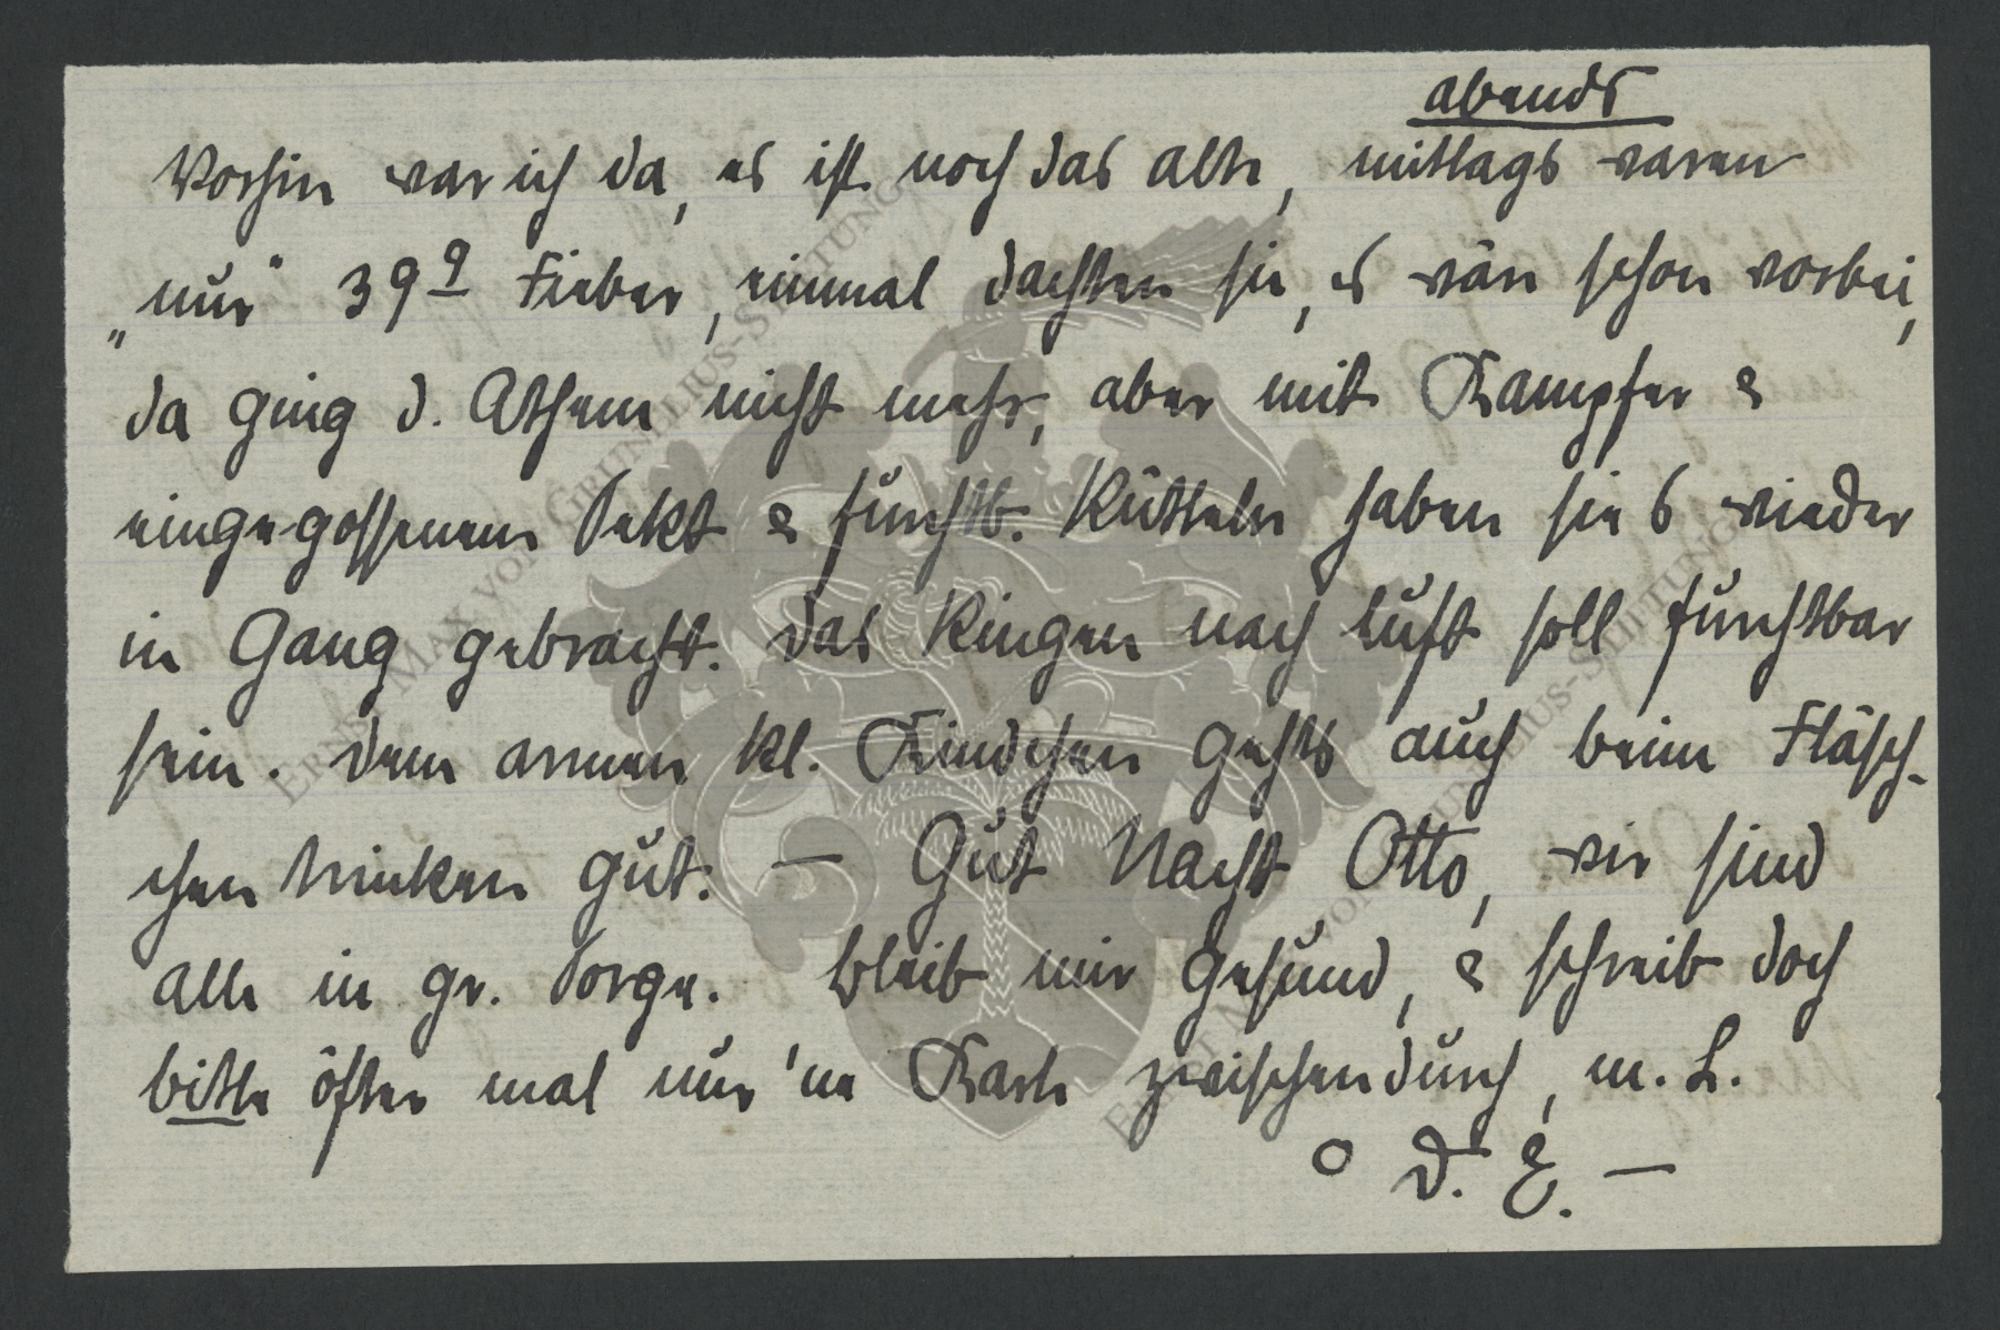 abends
Vorhin war ich da, es ist noch das alte, mittags waren
„nur" 39⁹ Fieber, einmal dachten sie, es wär schon vorbei,
da ging d. Athem nicht mehr, aber mit Kampfer &
eingegossenem Sekt & furchtb. Rütteln haben sie s wieder
in Gang gebracht. Das Ringen nach Luft soll furchtbar
sein. Dem armen kl. Kindchen gehts auch beim Fläsch-
chen trinken gut. — Gut Nacht Otto, wir sind
alle in gr. Sorge. Bleib mir gesund, & schreib doch
bitte öfter mal nur 'ne Karte zwischendurch, m. L.
o D. E. —
ERNST MAX VON GRUNELIUS-STIFTUNG
ERNST MAX VON GRUNELIUS-STIFTUNG